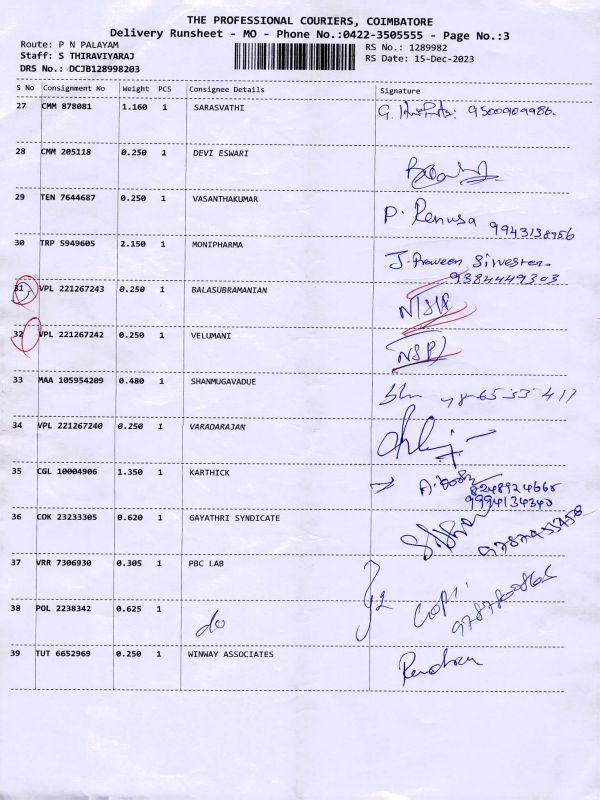 THE PROFESSIONAL COURIERS, COIMBATORE
Delivery Runsheet - MO - Phone No.:0422-3505555 - Page No.:3
Route: P N PALAYAM
RS No.: 1289982
Staff: S THIRAVIYARAJ
RS Date: 15-Dec-2023
DRS No.: DCJB128998203
S No Consignment No Weight PCS Consignee Details Signature
27 CMM 878081 1.160 1 SARASVATHI
28 CMM 205118 0.250 1 DEVI ESWARI
29 TEN 7644687 0.250 1 VASANTHAKUMAR P. Renusa
9943138956
30 TRP 5949605 2.150 1 MONIPHARMA J. Praveen Silvester
9384449303
31 VPL 221267243 0.250 1 BALASUBRAMANIAN
32 VPL 221267242 0.250 1 VELUMANI NSP
33 MAA 105954209 0.480 1 SHANMUGAVADUE
34 VPL 221267240 0.250 1 VARADARAJAN
35 CGL 10004906 1.350 1 KARTHICK
8248924668
9994134340
36 COK 23233305 0.620 1 GAYATHRI SYNDICATE
37 VRR 7306930 0.305 1 PBC LAB
38 POL 2238342 0.625 1 do Gopi
39 TUT 6652969 0.250 1 WINWAY ASSOCIATES